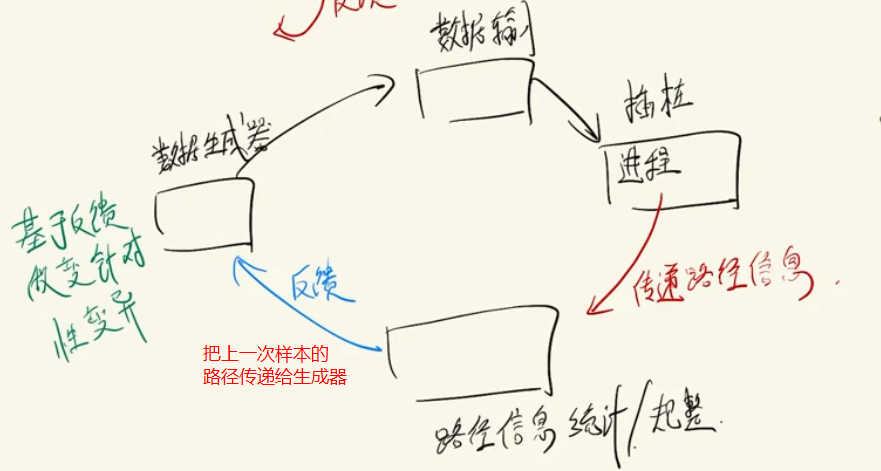 反馈
数据输入
插桩
进程
数据生成器
基于反馈
做变针对
性变异
反馈
传递路径信息.
把上一次样本的
路径传递给生成器
路径信息统计/